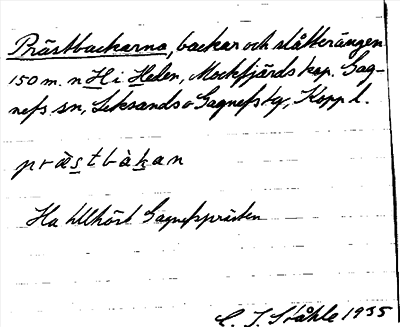 Prästbackarna, backar och slåtterängen
150 m. n H i Heden, Mockfjärds kap. Gag-
nefs sn, Leksands o Gagnefs tg, Kopp l.
präs̲tbàk̲an
Ha tillhört Gagnefsprästen
C. I. Ståhle 1935